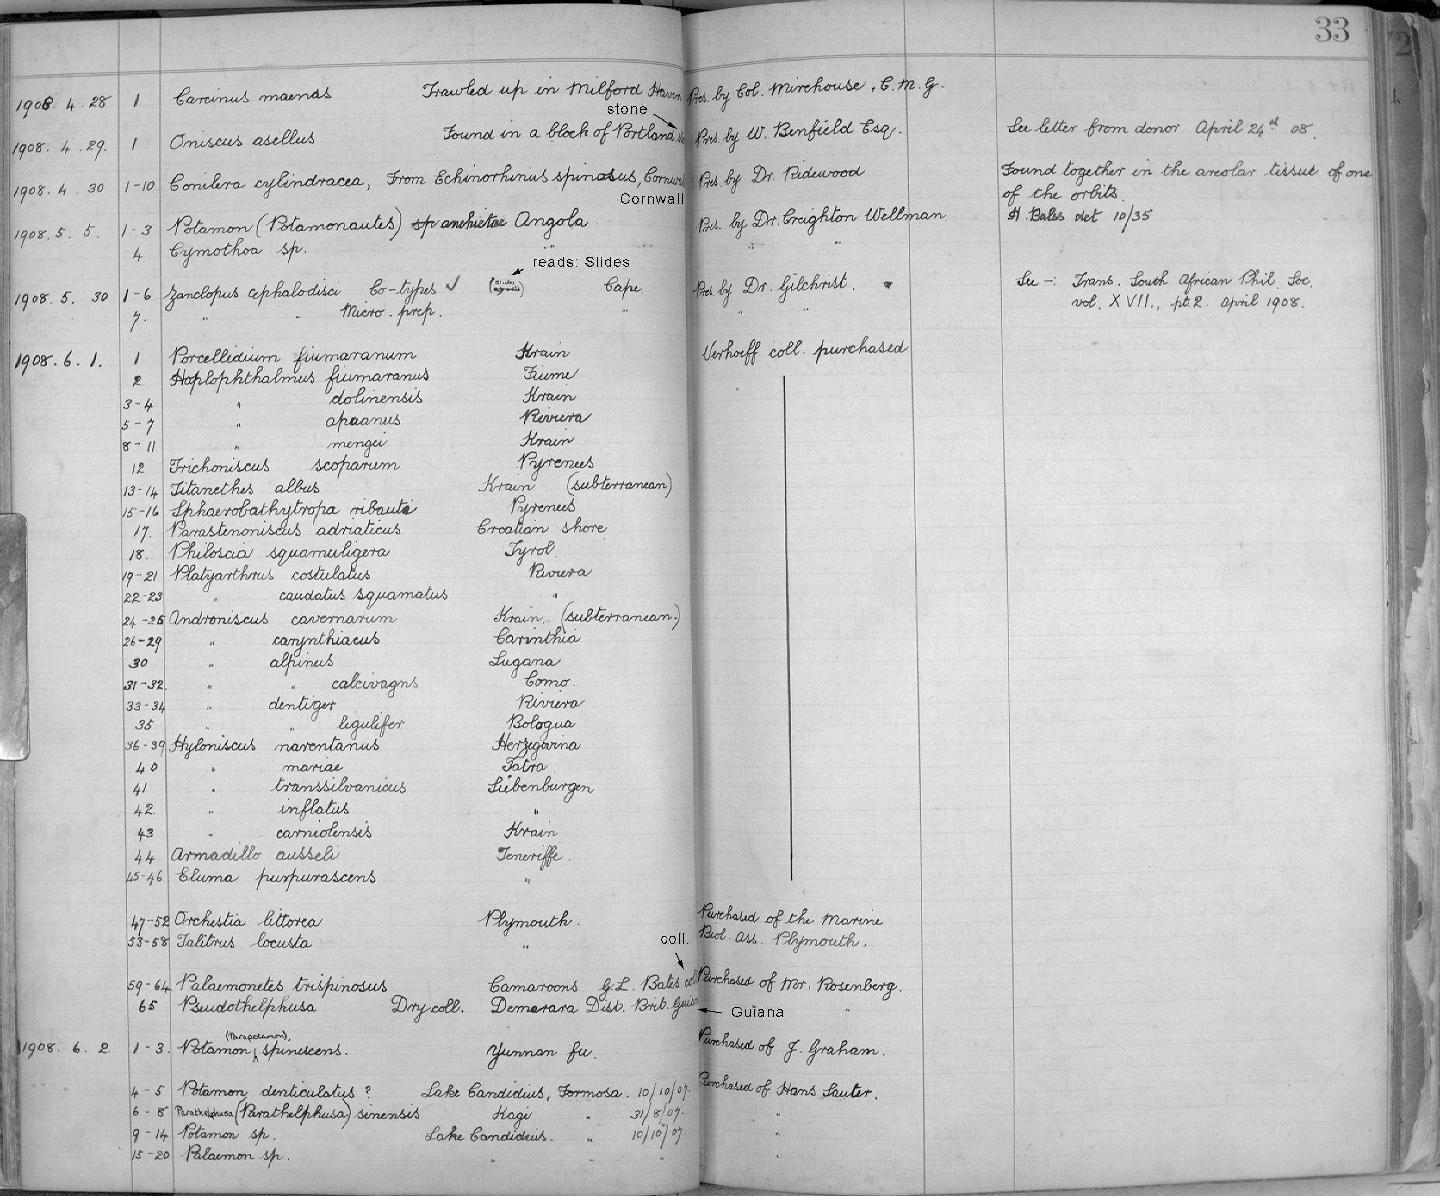 33
1908 4. 28 1 Carcinus maenas Trawled up in Milford Haven Pres. by Col. Mirehouse, C.M.G.
stone
1908. 4. 29. 1 Oniscus asellus Found in a block of Portland Pres. by W. Benfield Esq. See letter from donor April 24th 08.
1908. 4. 30 1-10 Conilera cylindracea, From Echinorhinus spinosus, Cornwall Pres. by Dr. Ridewood Found together in the areolar tissue of one
of the orbits.
Cornwall
1908. 5. 5. 1-3 Potamon (Potamonautes) sp anchietae Angola Pres. by Dr. Creighton Wellman H. Bales det 10/35
4 Cymothoa sp. " " "
reads: Slides
1908. 5. 30 1-6 Zanclopus cephalodisci Co-types ✓ (Slides) Cape. Pres. by Dr. Gilchrist. See -: Trans. South African Phil. Soc.
7. " " Micro. prep. " " " vol. XVII., pt. 2. April 1908.
1908. 6. 1. 1 Porcellidium fiumaranum Krain Verhoeff coll. purchased
2 Haplophthalmus fiumaranus Fiume "
3-4 " dolinensis Krain
5-7 " apuanus Riviera
8-11 " mengei Krain
12 Trichoniscus scoparum Pyrenees
13-14 Titanethes albus Krain (subterranean)
15-16 Sphaerobathytropa ribauti Pyrenees
17. Parastenoniscus adriaticus Croatian shore
18. Philoscia squamuligera Tyrol.
19-21 Platyarthrus costulatus Riviera
22-23 " caudatus squamatus "
24-25 Androniscus cavernarum Krain. (subterranean.)
26-29 " carynthiacus Carinthia
30 " alpinus Lugana
31-32. " " calcivagns Como.
33-34 " dentiger Riviera
35 " " ligulifer Bologua
36-39 Hyloniscus narentanus Herzegovina
40 " mariae Tatra
41 " transsilvanicus Siebenburgen
42. " inflatus "
43 " carniolensis Krain
44 Armadillo ausseli Teneriffe.
45-46 Eluma purpurascens "
47-52 Orchestia littorea Plymouth. Purchased of the Marine
53-58 Talitrus locusta " Biol. Ass. Plymouth.
coll.
59-64 Palaemonetes trispinosus Camaroons G.L. Bates coll Purchased of Mr. Rosenberg.
65 Pseudothelphusa Dry coll. Demerara Dist. Brit. Guiana "
Guiana
(Parapotamon),
1908. 6. 2. 1-3. Potamon spinescens. Yunnan fu. Purchased of J. Graham.
4-5 Potamon denticulatus? Lake Candidius, Formosa. 10/10/07. Purchased of Hans Sauter.
6-8 Parathelphusa (Parathelphusa) sinensis Kagi " 31/8/07. "
9-14 Potamon sp. Lake Candideus. " 10/10/07 "
15-20 Palaemon sp. " " "